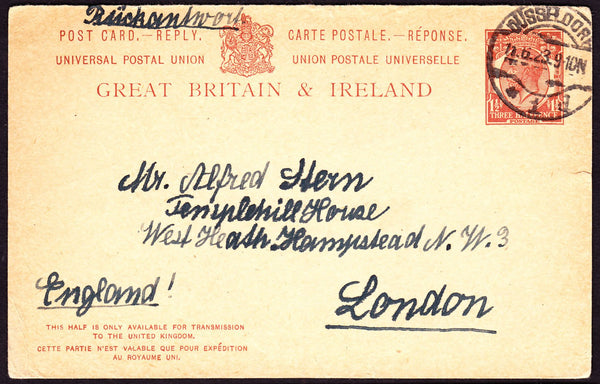 Rückantwort
POST CARD.—REPLY. CARTE POSTALE.—RÉPONSE.
UNIVERSAL POSTAL UNION UNION POSTALE UNIVERSELLE
GREAT BRITAIN & IRELAND
DÜSSELDORF
1
THREE HALFPENCE
POSTAGE
Mr. Alfred Stern
Templehill House
West Heath Hampstead N.W.3
England!
London
THIS HALF IS ONLY AVAILABLE FOR TRANSMISSION
TO THE UNITED KINGDOM.
CETTE PARTIE N'EST VALABLE QUE POUR EXPÉDITION
AU ROYAUME UNI.